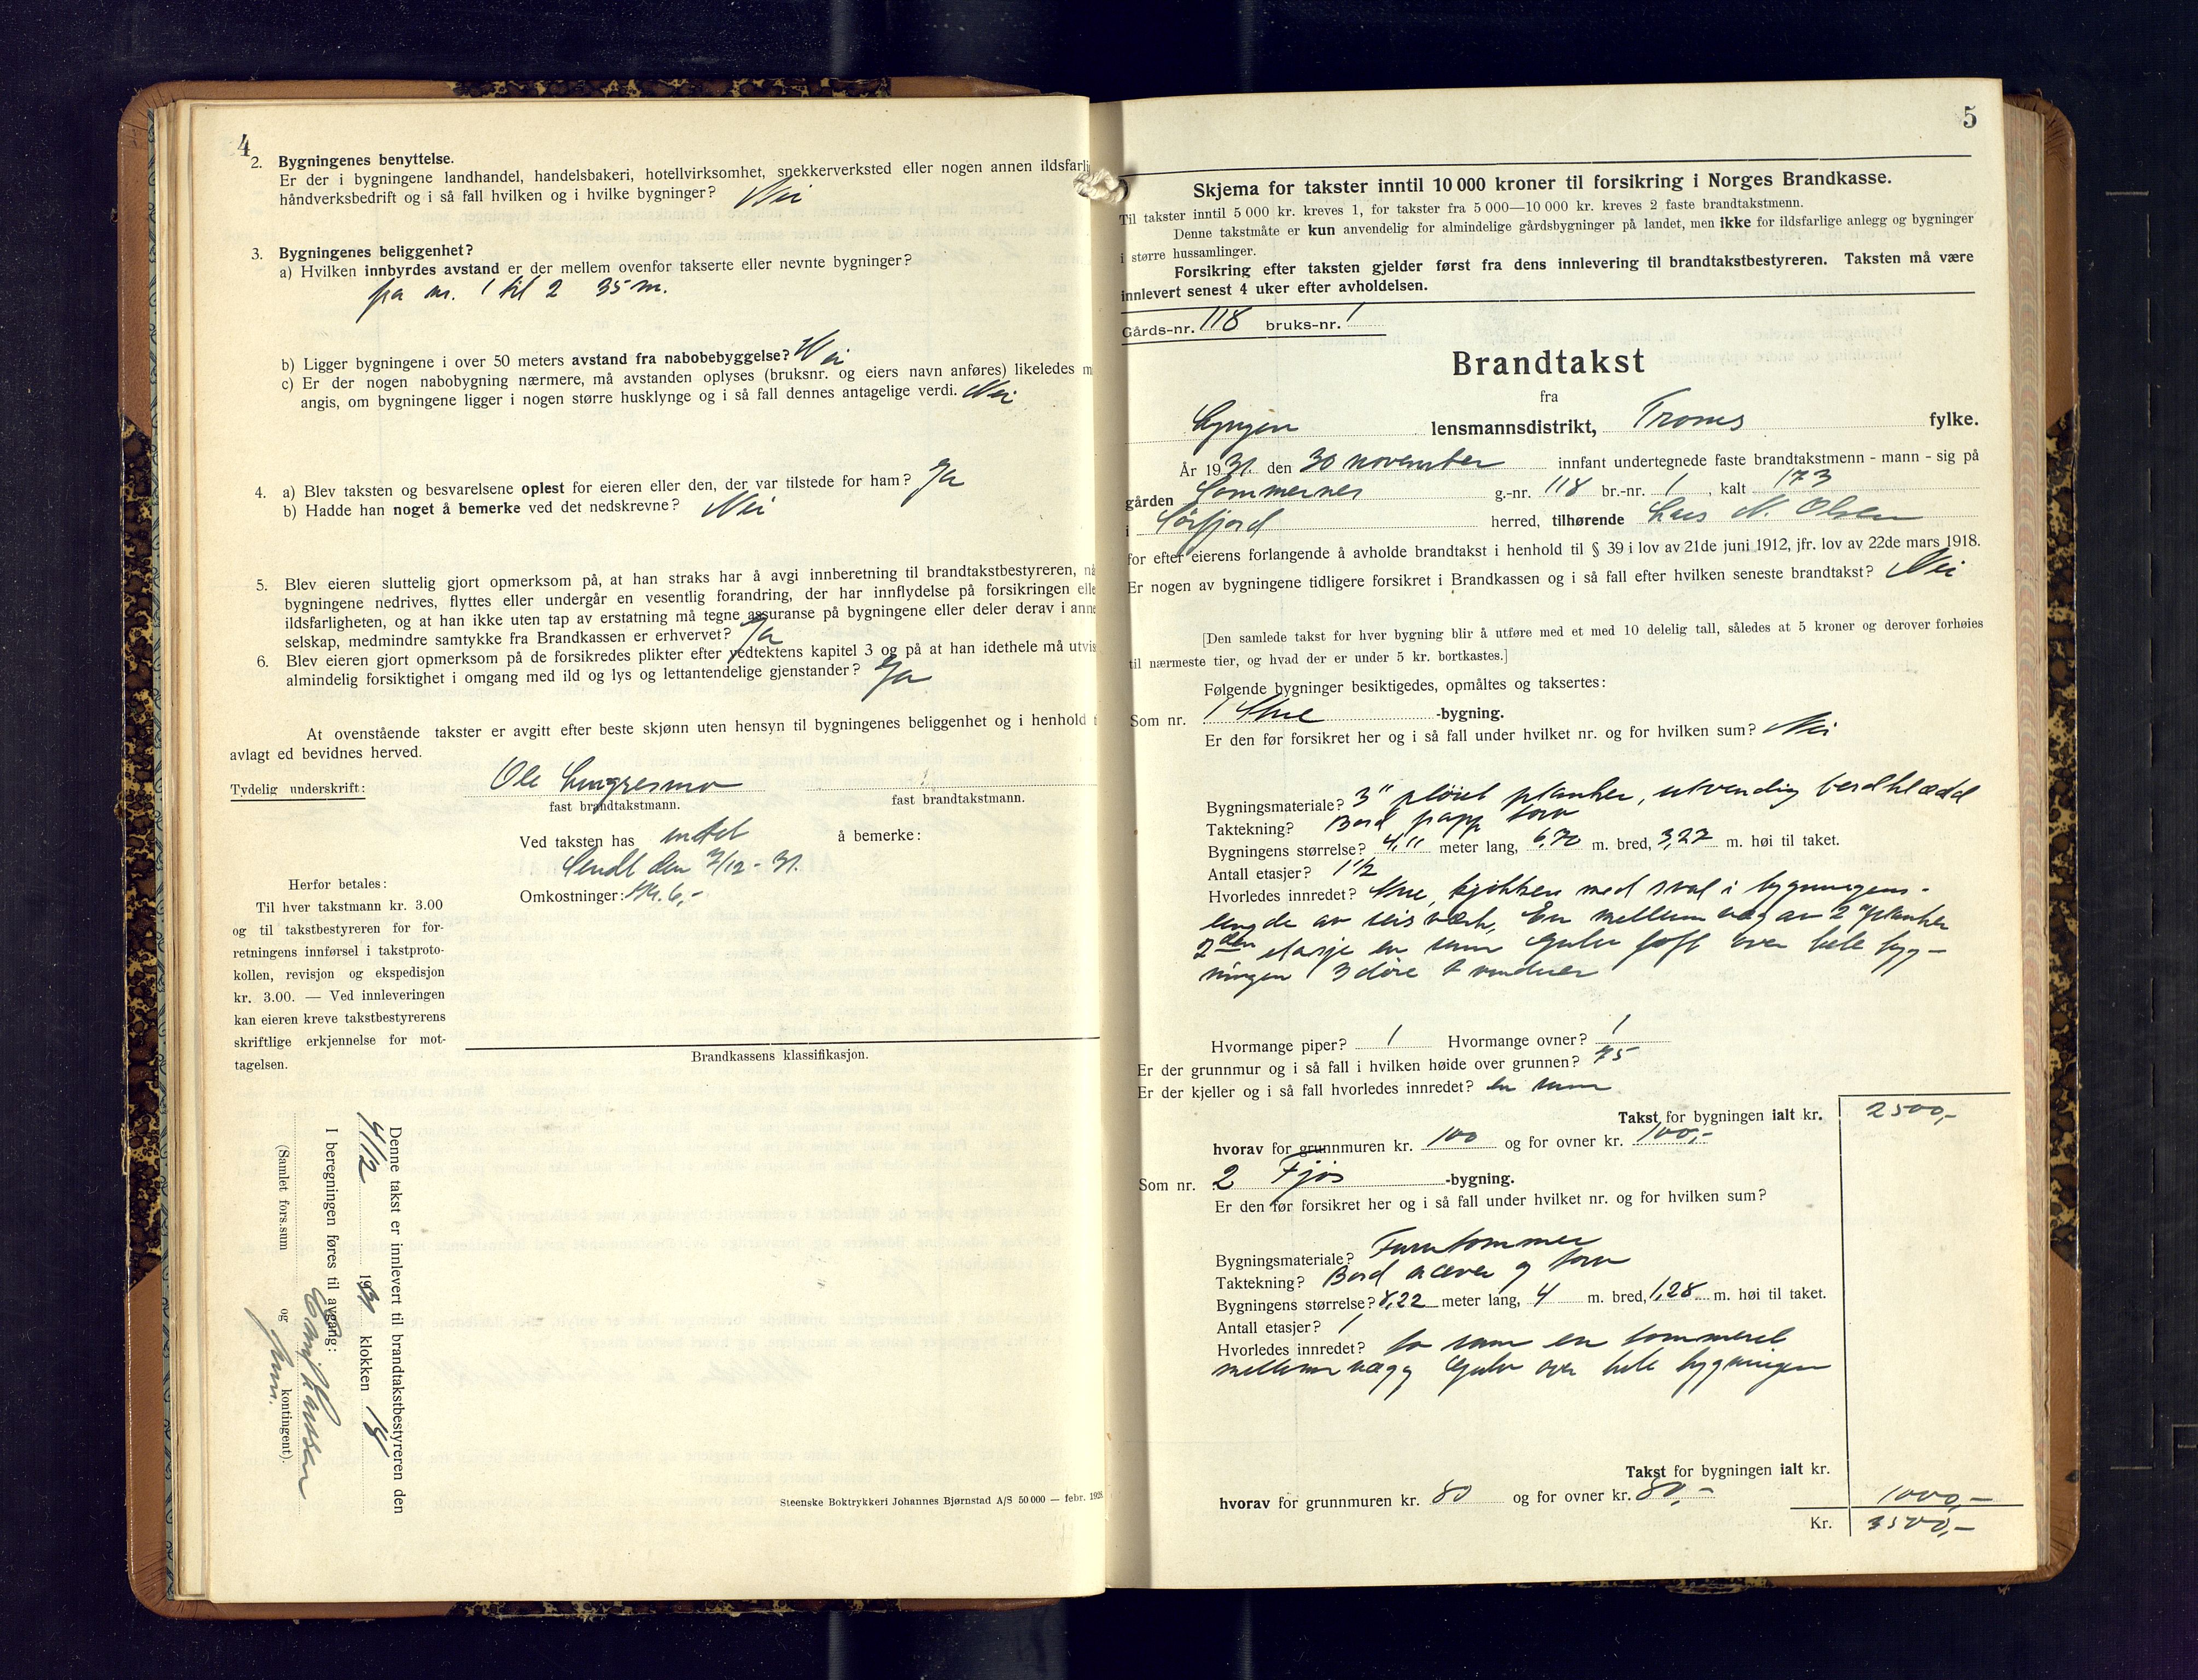 4
2. Bygningenes benyttelse.
Er der i bygningene landhandel, handelsbakeri, hotellvirksomhet, snekkerverksted eller nogen annen ildsfarli
håndverksbedrift og i så fall hvilken og i hvilke bygninger? Nei
3. Bygningenes beliggenhet?
a) Hvilken innbyrdes avstand er der mellem ovenfor takserte eller nevnte bygninger?
fra nr. 1 til 2 35 m.
b) Ligger bygningene i over 50 meters avstand fra nabobebyggelse? Nei
c) Er der nogen nabobygning nærmere, må avstanden oplyses (bruksnr. og eiers navn anføres) likeledes m
angis, om bygningene ligger i nogen større husklynge og i så fall dennes antagelige verdi. Nei
4. a) Blev taksten og besvarelsene oplest for eieren eller den, der var tilstede for ham? Ja
b) Hadde han noget å bemerke ved det nedskrevne? Nei
5. Blev eieren sluttelig gjort opmerksom på, at han straks har å avgi innberetning til brandtakstbestyreren, nå
bygningene nedrives, flyttes eller undergår en vesentlig forandring, der har innflydelse på forsikringen elle
ildsfarligheten, og at han ikke uten tap av erstatning må tegne assuranse på bygningene eller deler derav i anne
selskap, medmindre samtykke fra Brandkassen er erhvervet? Ja
6. Blev eieren gjort opmerksom på de forsikredes plikter efter vedtektens kapitel 3 og på at han idethele må utvis
almindelig forsiktighet i omgang med ild og lys og lettantendelige gjenstander? Ja
At ovenstående takster er avgitt efter beste skjønn uten hensyn til bygningenes beliggenhet og i henhold t
avlagt ed bevidnes herved.
Tydelig underskrift: Ole
fast brandtakstmann. fast brandtakstmann.
Ved taksten has intet å bemerke:
Sendt den 7/12-31.
Omkostninger: Kr. 6,-
Herfor betales:
Til hver takstmann kr. 3.00
og til takstbestyreren for for-
retningens innførsel i takstproto-
kollen, revisjon og ekspedisjon
kr. 3.00. — Ved innleveringen
kan eieren kreve takstbestyrerens
skriftlige erkjennelse for mot-
tagelsen.
Brandkassens klassifikasjon.
Denne takst er innlevert til brandtakstbestyreren den
4/12 1931 klokken 14
I beregningen føres til avgang:
(Samlet fors.sum og kontingent).
Steenske Boktrykkeri Johannes Bjørnstad A/S 50 000 — febr. 192
5
Skjema for takster inntil 10 000 kroner til forsikring i Norges Brandkasse.
Til takster inntil 5 000 kr. kreves 1, for takster fra 5 000—10 000 kr. kreves 2 faste brandtakstmenn.
Denne takstmåte er kun anvendelig for almindelige gårdsbygninger på landet, men ikke for ildsfarlige anlegg og bygninger
i større hussamlinger.
Forsikring efter taksten gjelder først fra dens innlevering til brandtakstbestyreren. Taksten må være
innlevert senest 4 uker efter avholdelsen.
Gårds-nr. 118 bruks-nr. 1
Brandtakst
fra
Lyngen lensmannsdistrikt, Troms fylke.
År 1931 den 30 november innfant undertegnede faste brandtakstmenn - mann - sig på
gården Sommernes g.-nr. 118 br.-nr. 1, kalt 173
i Sørfjord herred, tilhørende Lars N. Olsen
for efter eierens forlangende å avholde brandtakst i henhold til § 39 i lov av 21de juni 1912, jfr. lov av 22de mars 1918.
Er nogen av bygningene tidligere forsikret i Brandkassen og i så fall efter hvilken seneste brandtakst? Nei
[Den samlede takst for hver bygning blir å utføre med et med 10 delelig tall, således at 5 kroner og derover forhøies
til nærmeste tier, og hvad der er under 5 kr. bortkastes.]
Følgende bygninger besiktigedes, opmåltes og taksertes:
Som nr. 1 Stue -bygning.
Er den før forsikret her og i så fall under hvilket nr. og for hvilken sum? Nei
Bygningsmateriale? 3" pløiet planker, utvendig bordklædd
Taktekning? Bord papp torv
Bygningens størrelse? 4,11 meter lang, 6,70 m. bred, 3,27 m. høi til taket.
Antall etasjer? 1 1/2
Hvorledes innredet? Stue, kjøkken med sval i bygningens-
lengde av reisverk, En mellemvæg av 2" planker
2den etasje en rum Gulv loft over hele byg-
ningen 3 døre vinduer
Hvormange piper? 1 Hvormange ovner? 1
Er der grunnmur og i så fall i hvilken høide over grunnen? 75
Er der kjeller og i så fall hvorledes innredet? en rum
Takst for bygningen ialt kr. 2500,-
hvorav for grunnmuren kr. 100 og for ovner kr. 100,-
Som nr. 2 Fjøs -bygning.
Er den før forsikret her og i så fall under hvilket nr. og for hvilken sum?
Bygningsmateriale? Furutømmer
Taktekning? Bord næver og torv
Bygningens størrelse? 8,22 meter lang, 4 m. bred, 1,28 m. høi til taket.
Antall etasjer? 1
Hvorledes innredet? to rum en tømmeret
mellemvægg Gulv over hele bygningen
Takst for bygningen ialt kr.
hvorav for grunnmuren kr. 80 og for ovner kr. 80,- 1000,-
Kr. 3500,-